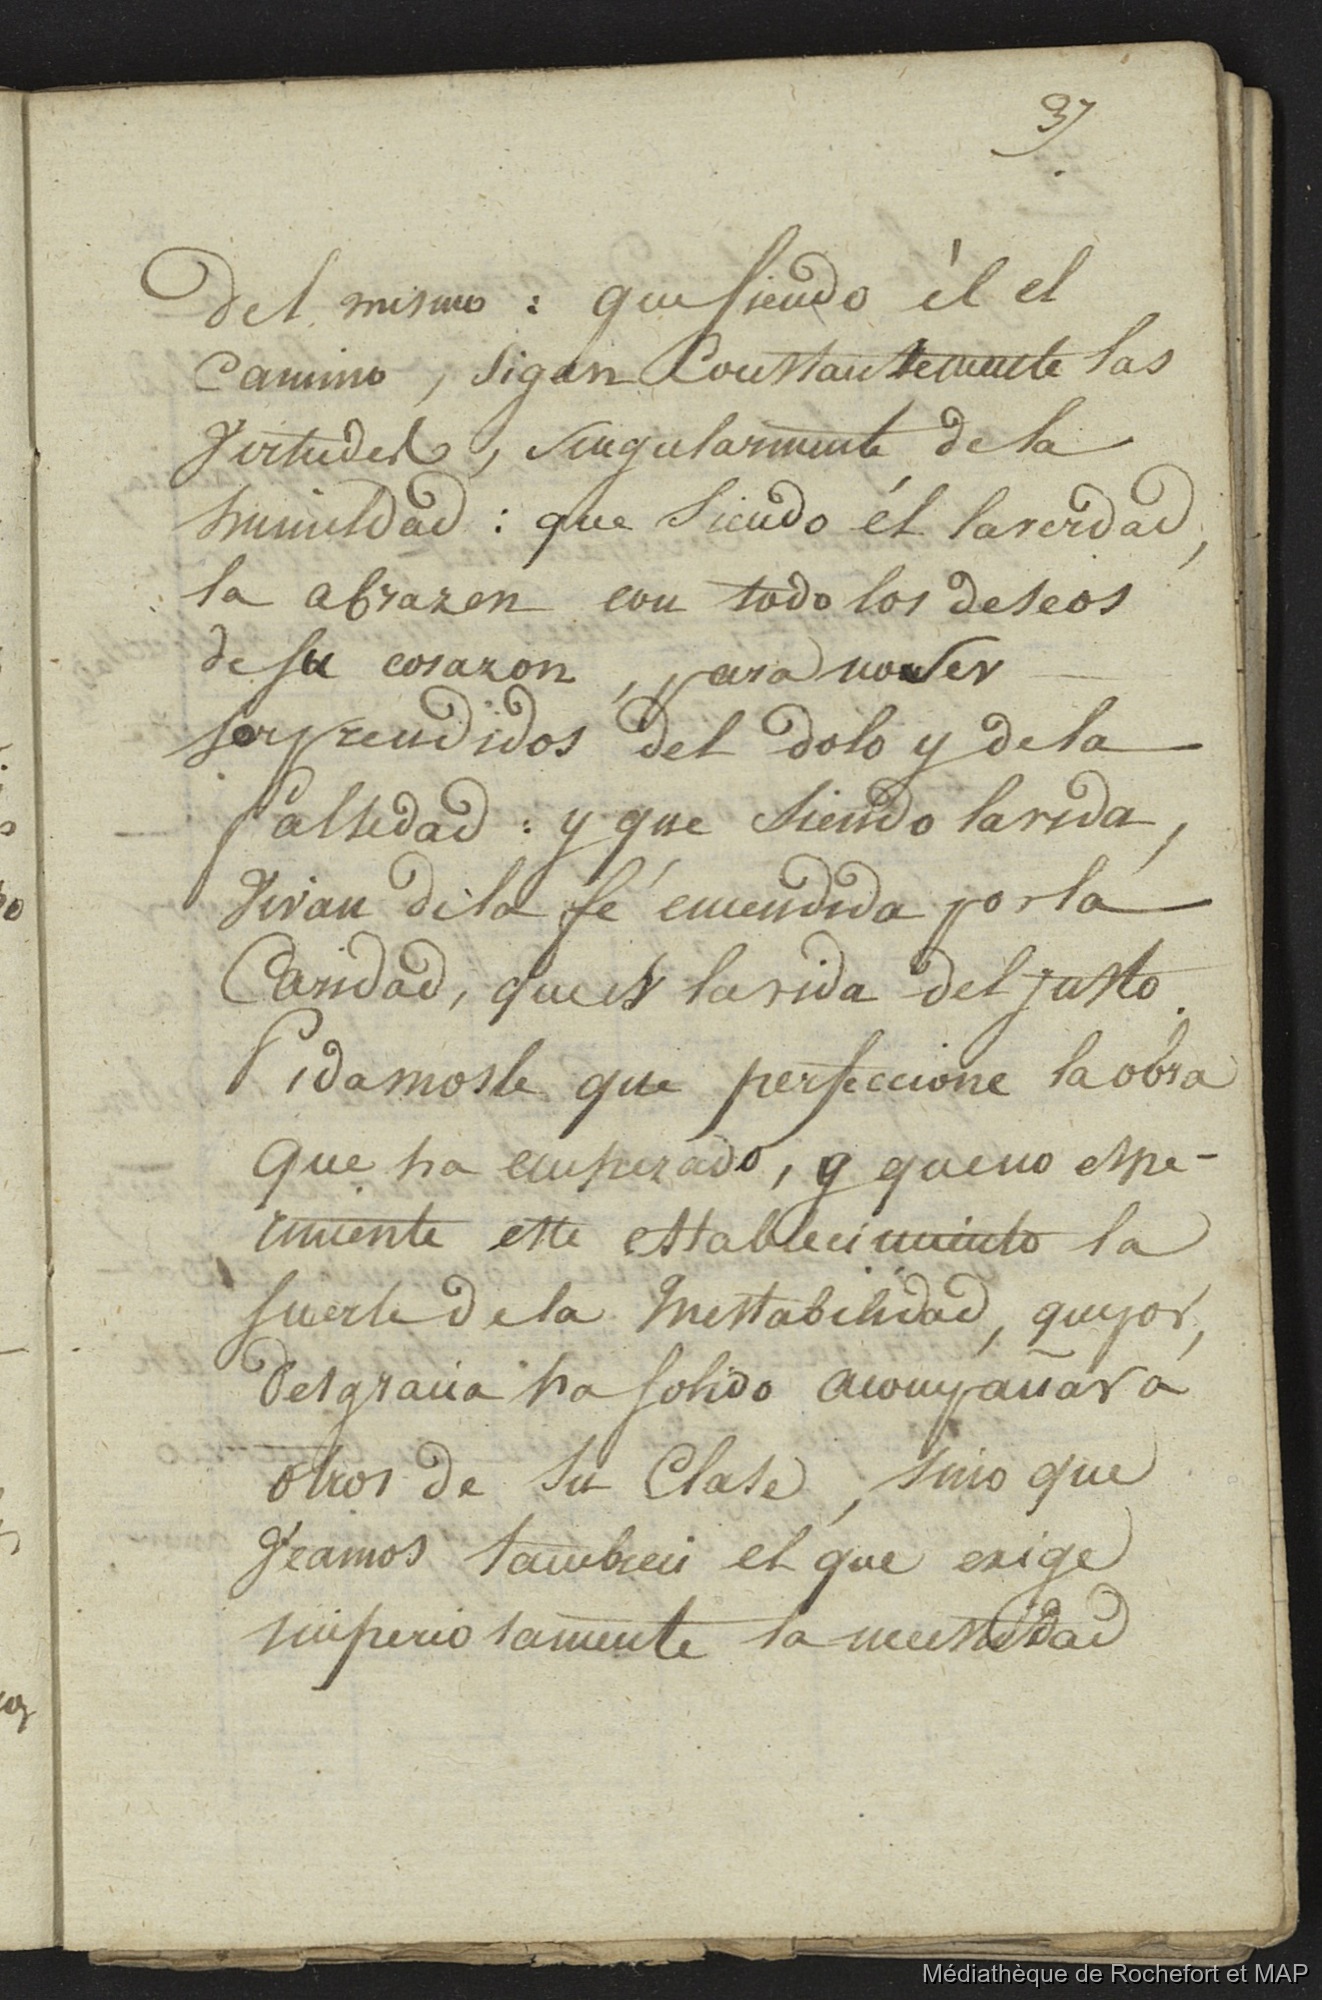 37
del mismo : que siendo él el
Camino, sigan Constantemente las
Virtudes, singularmente de la
humildad : que siendo él la verdad,
la abrazen con todo los deseos
de su corazon, para no ser
sorprendidos del dolo y de la
falsedad : y que siendo la vida,
Vivan de la fé encendida por la
Caridad, que es la vida del justo.
Pidamosle que perfeccione la obra
que ha empezado, y que no espe-
rimente este establecimiento la
suerte de la Inestabilidad, que por
desgracia ha solido acompañar a
otros de su Clase, sino que
Veamos tambien el que exige
imperiosamente la necesidad
Médiathèque de Rochefort et MAP